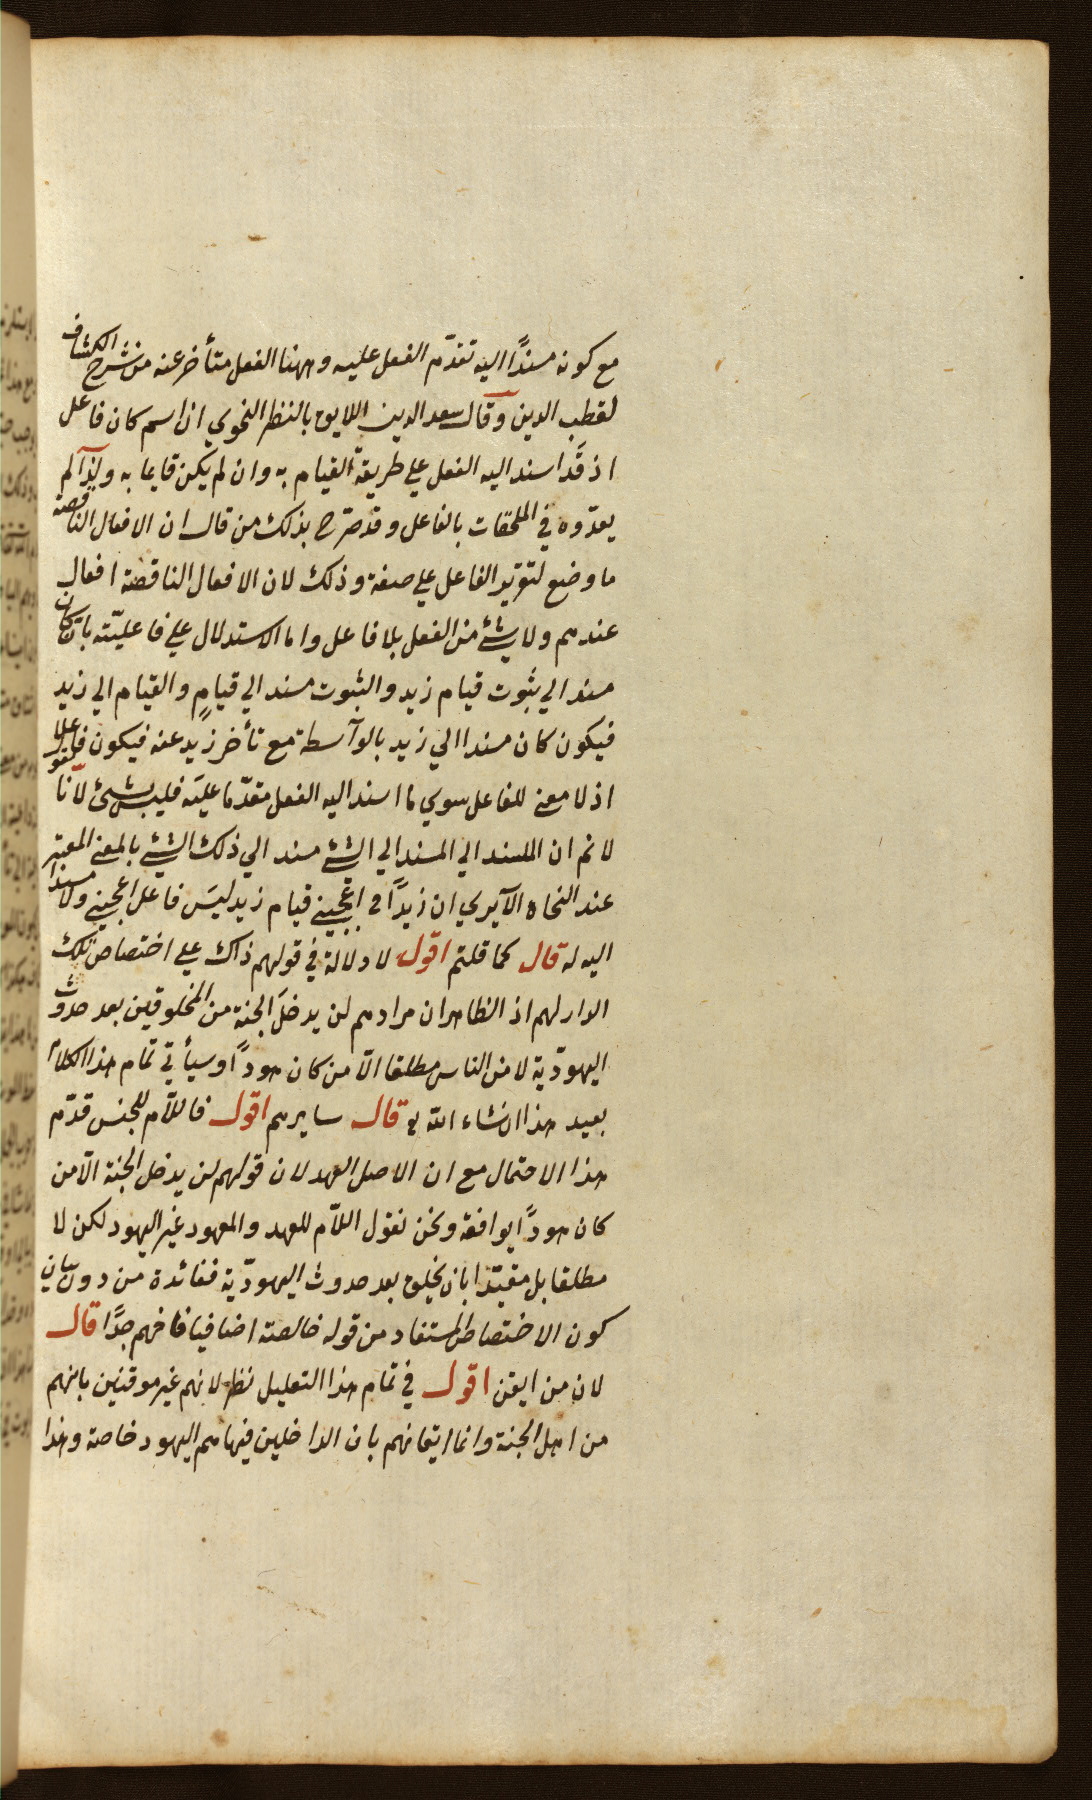 مع كونه مسندًا اليه تقدّم الفعل عليه وههنا الفعل متأخر عنه من شرح الكشاف
لقطب الدين وقال سعد الدين اللايق بالنظر النحوي ان اسم كان فاعل
اذ قد اسند اليه الفعل علي طريقة القيام به وان لم يكن قايما به ولذا لم
يعدّوه في الملحقات بالفاعل وقد صرّح بذلك من قال ان الافعال الناقصة
ما وضع لتقرير الفاعل علي صفة وذلك لان الافعال الناقصة افعال
عندهم ولا شئ من الفعل بلا فاعل واما الاستدلال علي فاعليّته بانّ كان
مسند الي ثبوت قيام زيد والثبوت مسند الي قيامٍ والقيام الي زيد
فيكون كان مسندا الي زيد بالوآسطة مع تأخر زيد عنه فيكون فاعلا
اذ لا معني للفاعل سوي ما اسند اليه الفعل مقدّما عليه فليس بشئ لانّا نقول
لا نم ان المسند الي المسند الي الشئ مسند الي ذلك الشئ بالمعني المعتبر
عند النحاة الآيري ان زيدًا في اعجبني قيام زيد ليسَ فاعل اعجبني ولا مسندا
اليه له قال كما قلتم اقول لا دلالة في قولهم ذاك علي اختصاص تلك
الدار لهم اذ الظاهر ان مرادهم لن يدخلَ الجنة من المخلوقين بعد حدوث
اليهوديّة لا من الناس مطلقا الّا من كان هودًا وسيأتي تمام هذا الكلام
بعيد هذا ان شاء الله تع قال سايرهم اقول فاللّام للجنس قدّم
هذا الاحتمال مع ان الاصل العهد لان قولهم لن يدخل الجنة الّا من
كان هودًا يوافقه ونحن نقول اللّام للعهد والمعهود غير اليهود لكن لا
مطلقا بل مقيّدا بان يخلق بعد حدوث اليهوديّة ففائدة من دون بيان
كون الاختصاص المستفاد من قوله خالصة اضافيا فافهم جدًّا قال
لان من ايقن اقول في تمام هذا التعليل نظر لانهم غير موقنين بانهم
من اهل الجنة وانما ايقانهم بان الداخلين فيها هم اليهود خاصة وهذا